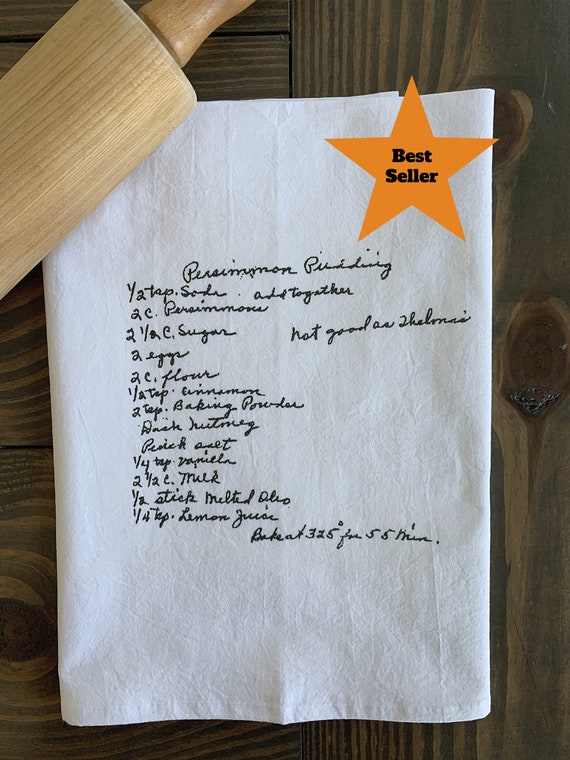 Best
Seller
Persimmon Pudding
1/2 tsp. Soda . add together
2 C. Persimmons
2 1/2 C. Sugar
Not good as Thelma's
2 eggs
2 C. flour
1/2 tsp. Cinnamon
2 tsp. Baking Powder
Dash nutmeg
Pinch salt
1/4 tsp. vanilla
2 1/2 C. Milk
1/2 stick Melted Oleo
1/4 tsp. Lemon Juice
Bake at 325° for 55 Min.